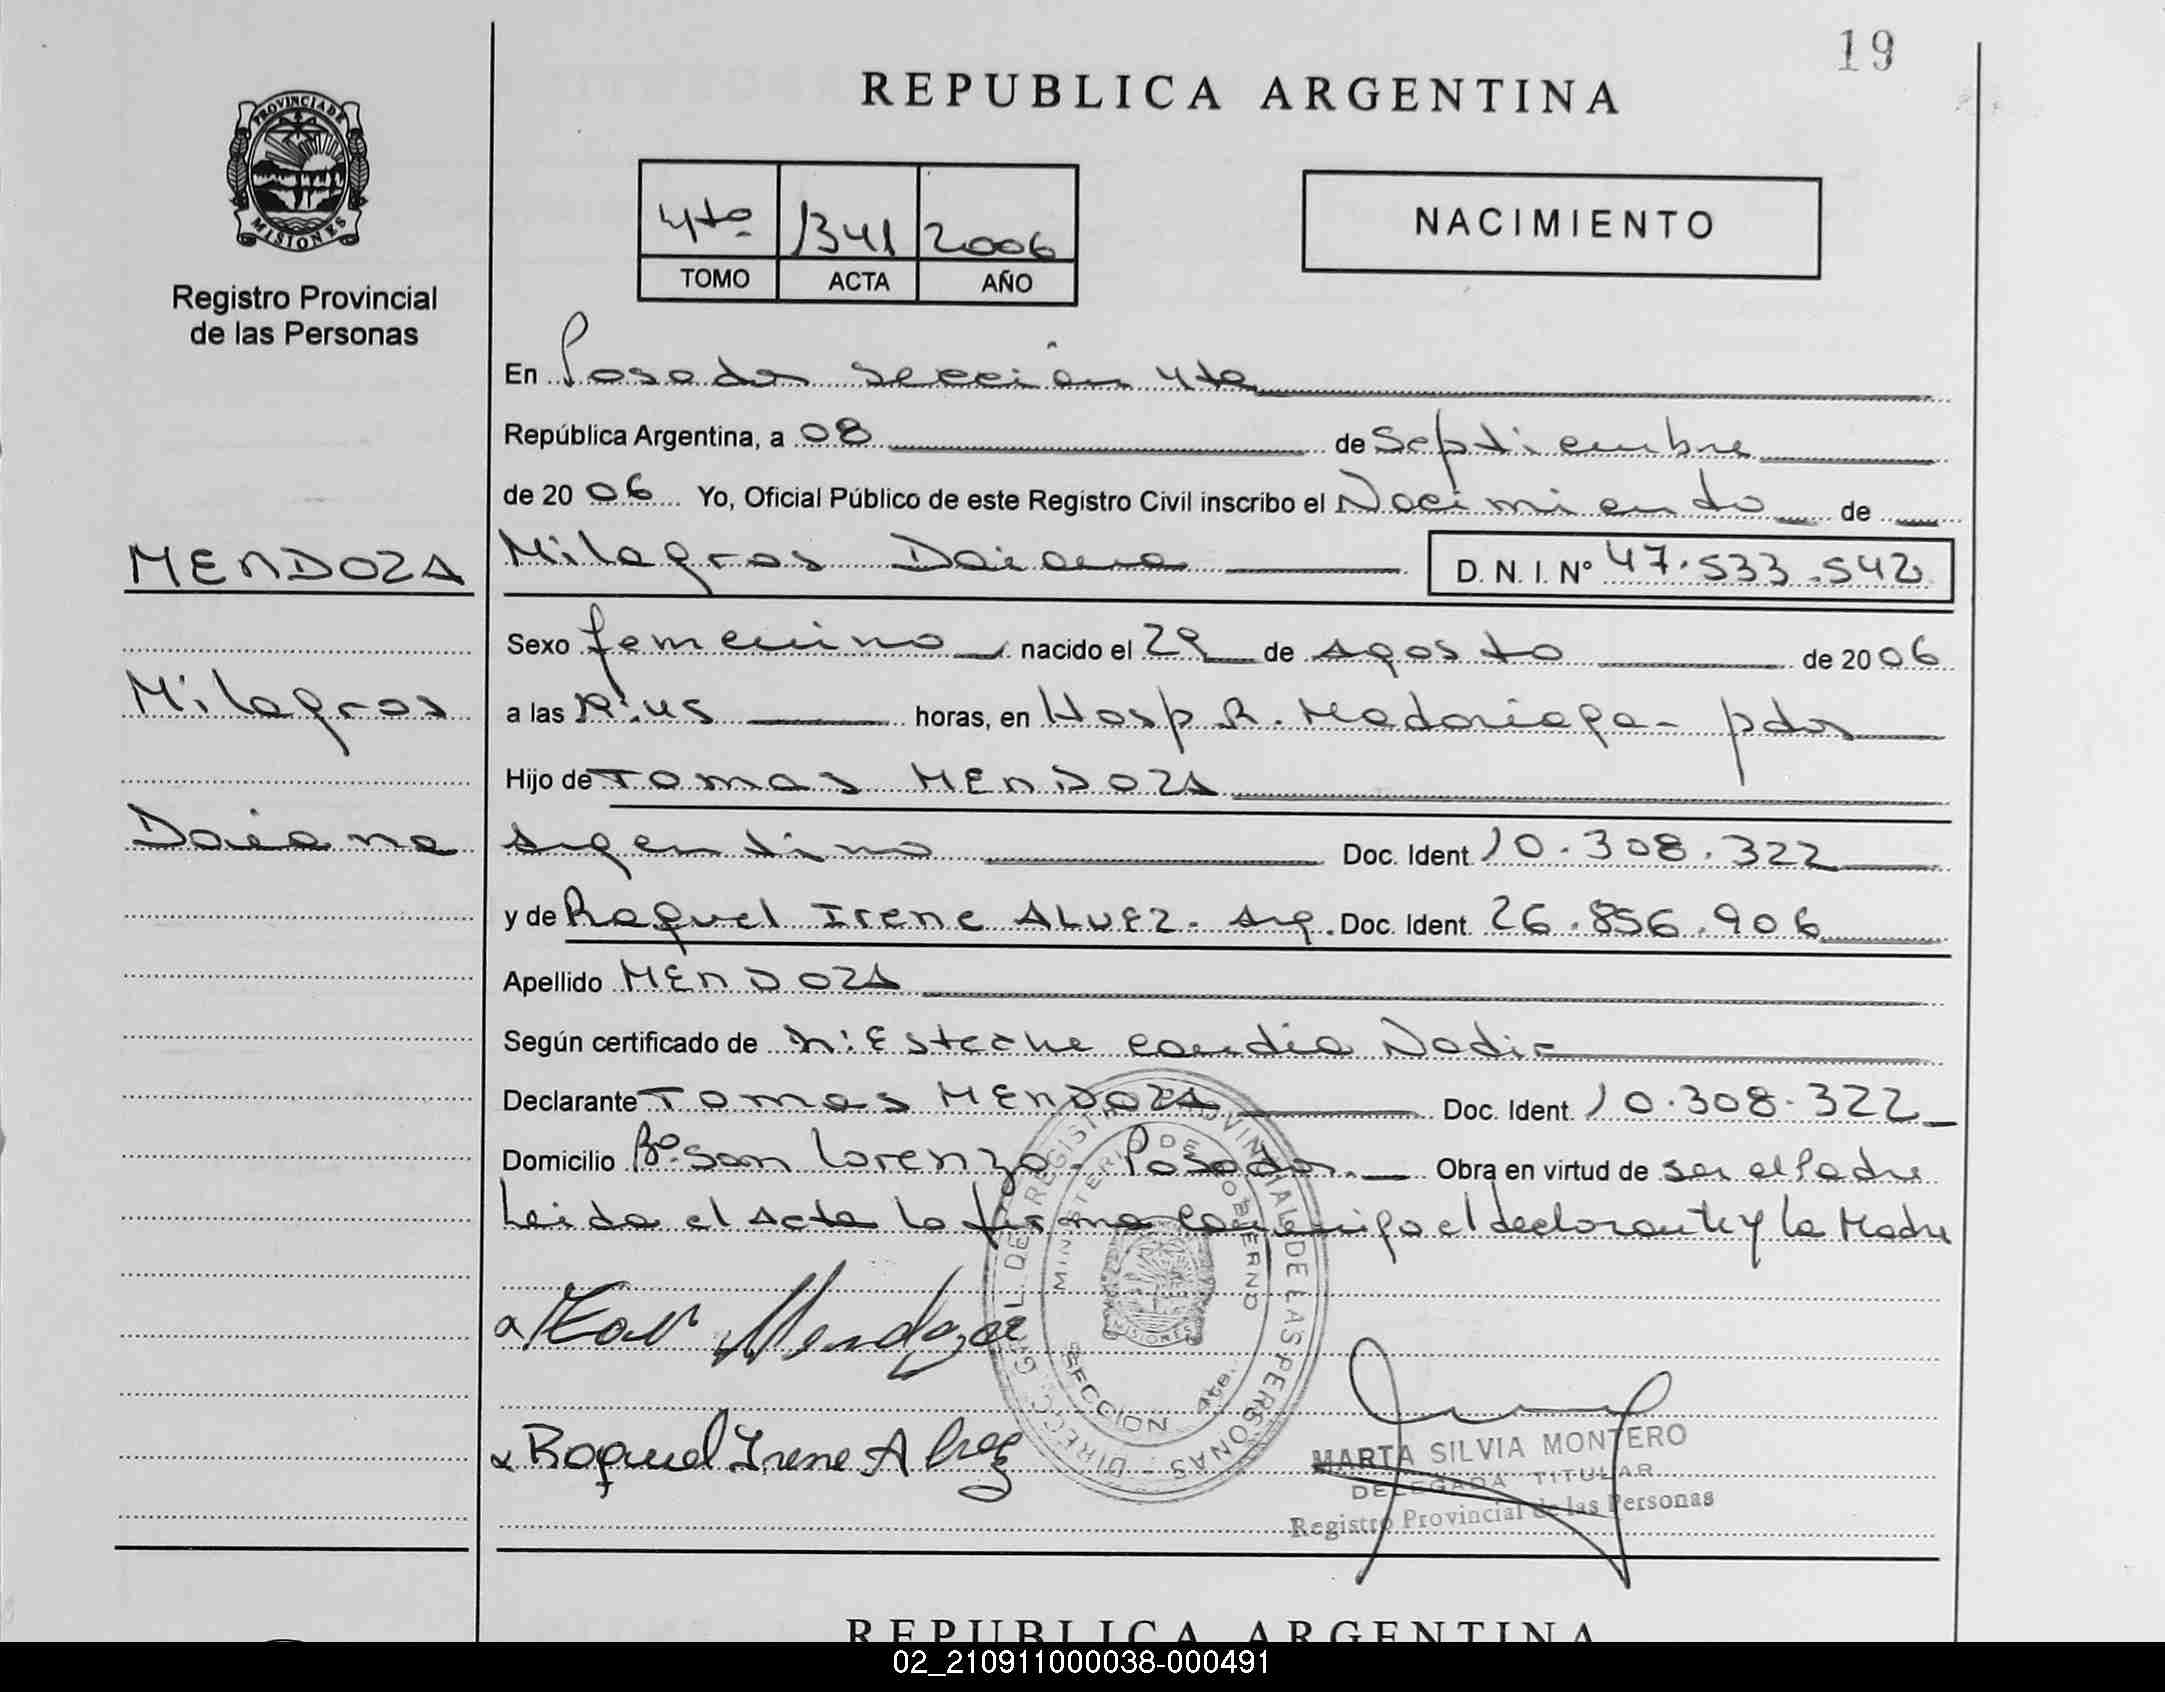 19
REPUBLICA ARGENTINA
PROVINCIA DE
MISIONES
Registro Provincial
de las Personas
4to 1341 2006
TOMO ACTA AÑO
NACIMIENTO
En Posadas Sección 4ta
República Argentina, a 08 de Septiembre
de 2006 Yo, Oficial Público de este Registro Civil inscribo el Nacimiento de
MENDOZA
Milagros Daiana
Milagros Daiana D. N. I. Nº 47.533.542
Sexo femenino nacido el 29 de Agosto de 2006
a las horas, en Hosp R. Madariaga - pdas
Hijo de Tomas MENDOZA
Argentino Doc. Ident. 10.308.322
y de Raquel Irene ALVEZ. Arg. Doc. Ident. 26.856.906
Apellido MENDOZA
Según certificado de Nadia
Declarante Tomas MENDOZA Doc. Ident. 10.308.322
Domicilio Bº San Lorenzo - Posadas. Obra en virtud de ser el Padre
Leida el Acta la firma conmigo el declarante y la Madre
Mendoza
Raquel Irene Alvez
DIRECC. GRAL. DE REGISTRO PROVINCIAL DE LAS PERSONAS
MINISTERIO DE GOBIERNO
MISIONES
SECCION 4ta.
MARTA SILVIA MONTERO
DELEGADA TITULAR
Registro Provincial de las Personas
REPUBLICA ARGENTINA
02_210911000038-000491